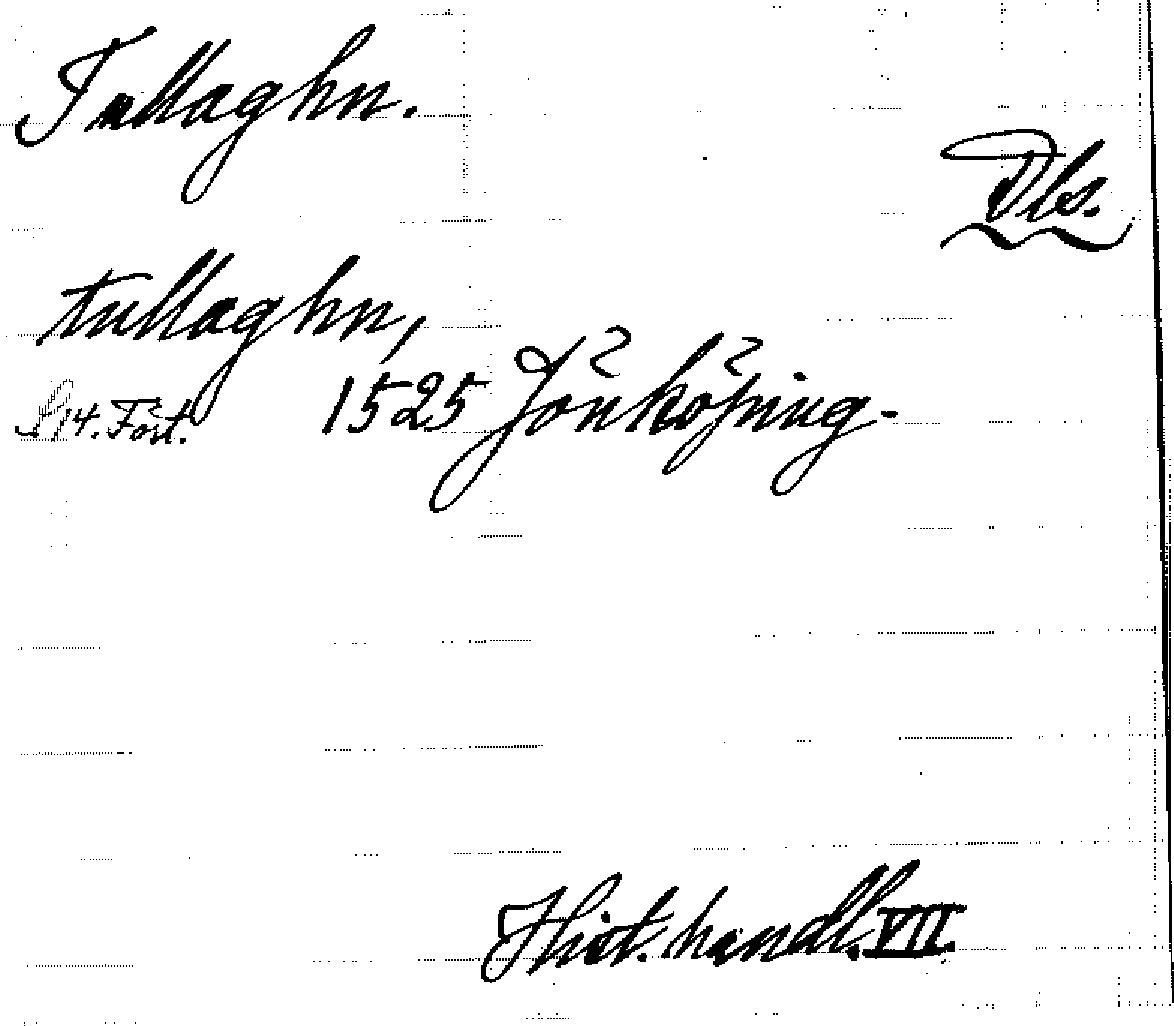 Tullaghn.
Dls.
tullaghn,
S. 14. Fört. 1525 Jönköping-
Hist. handl. VII.